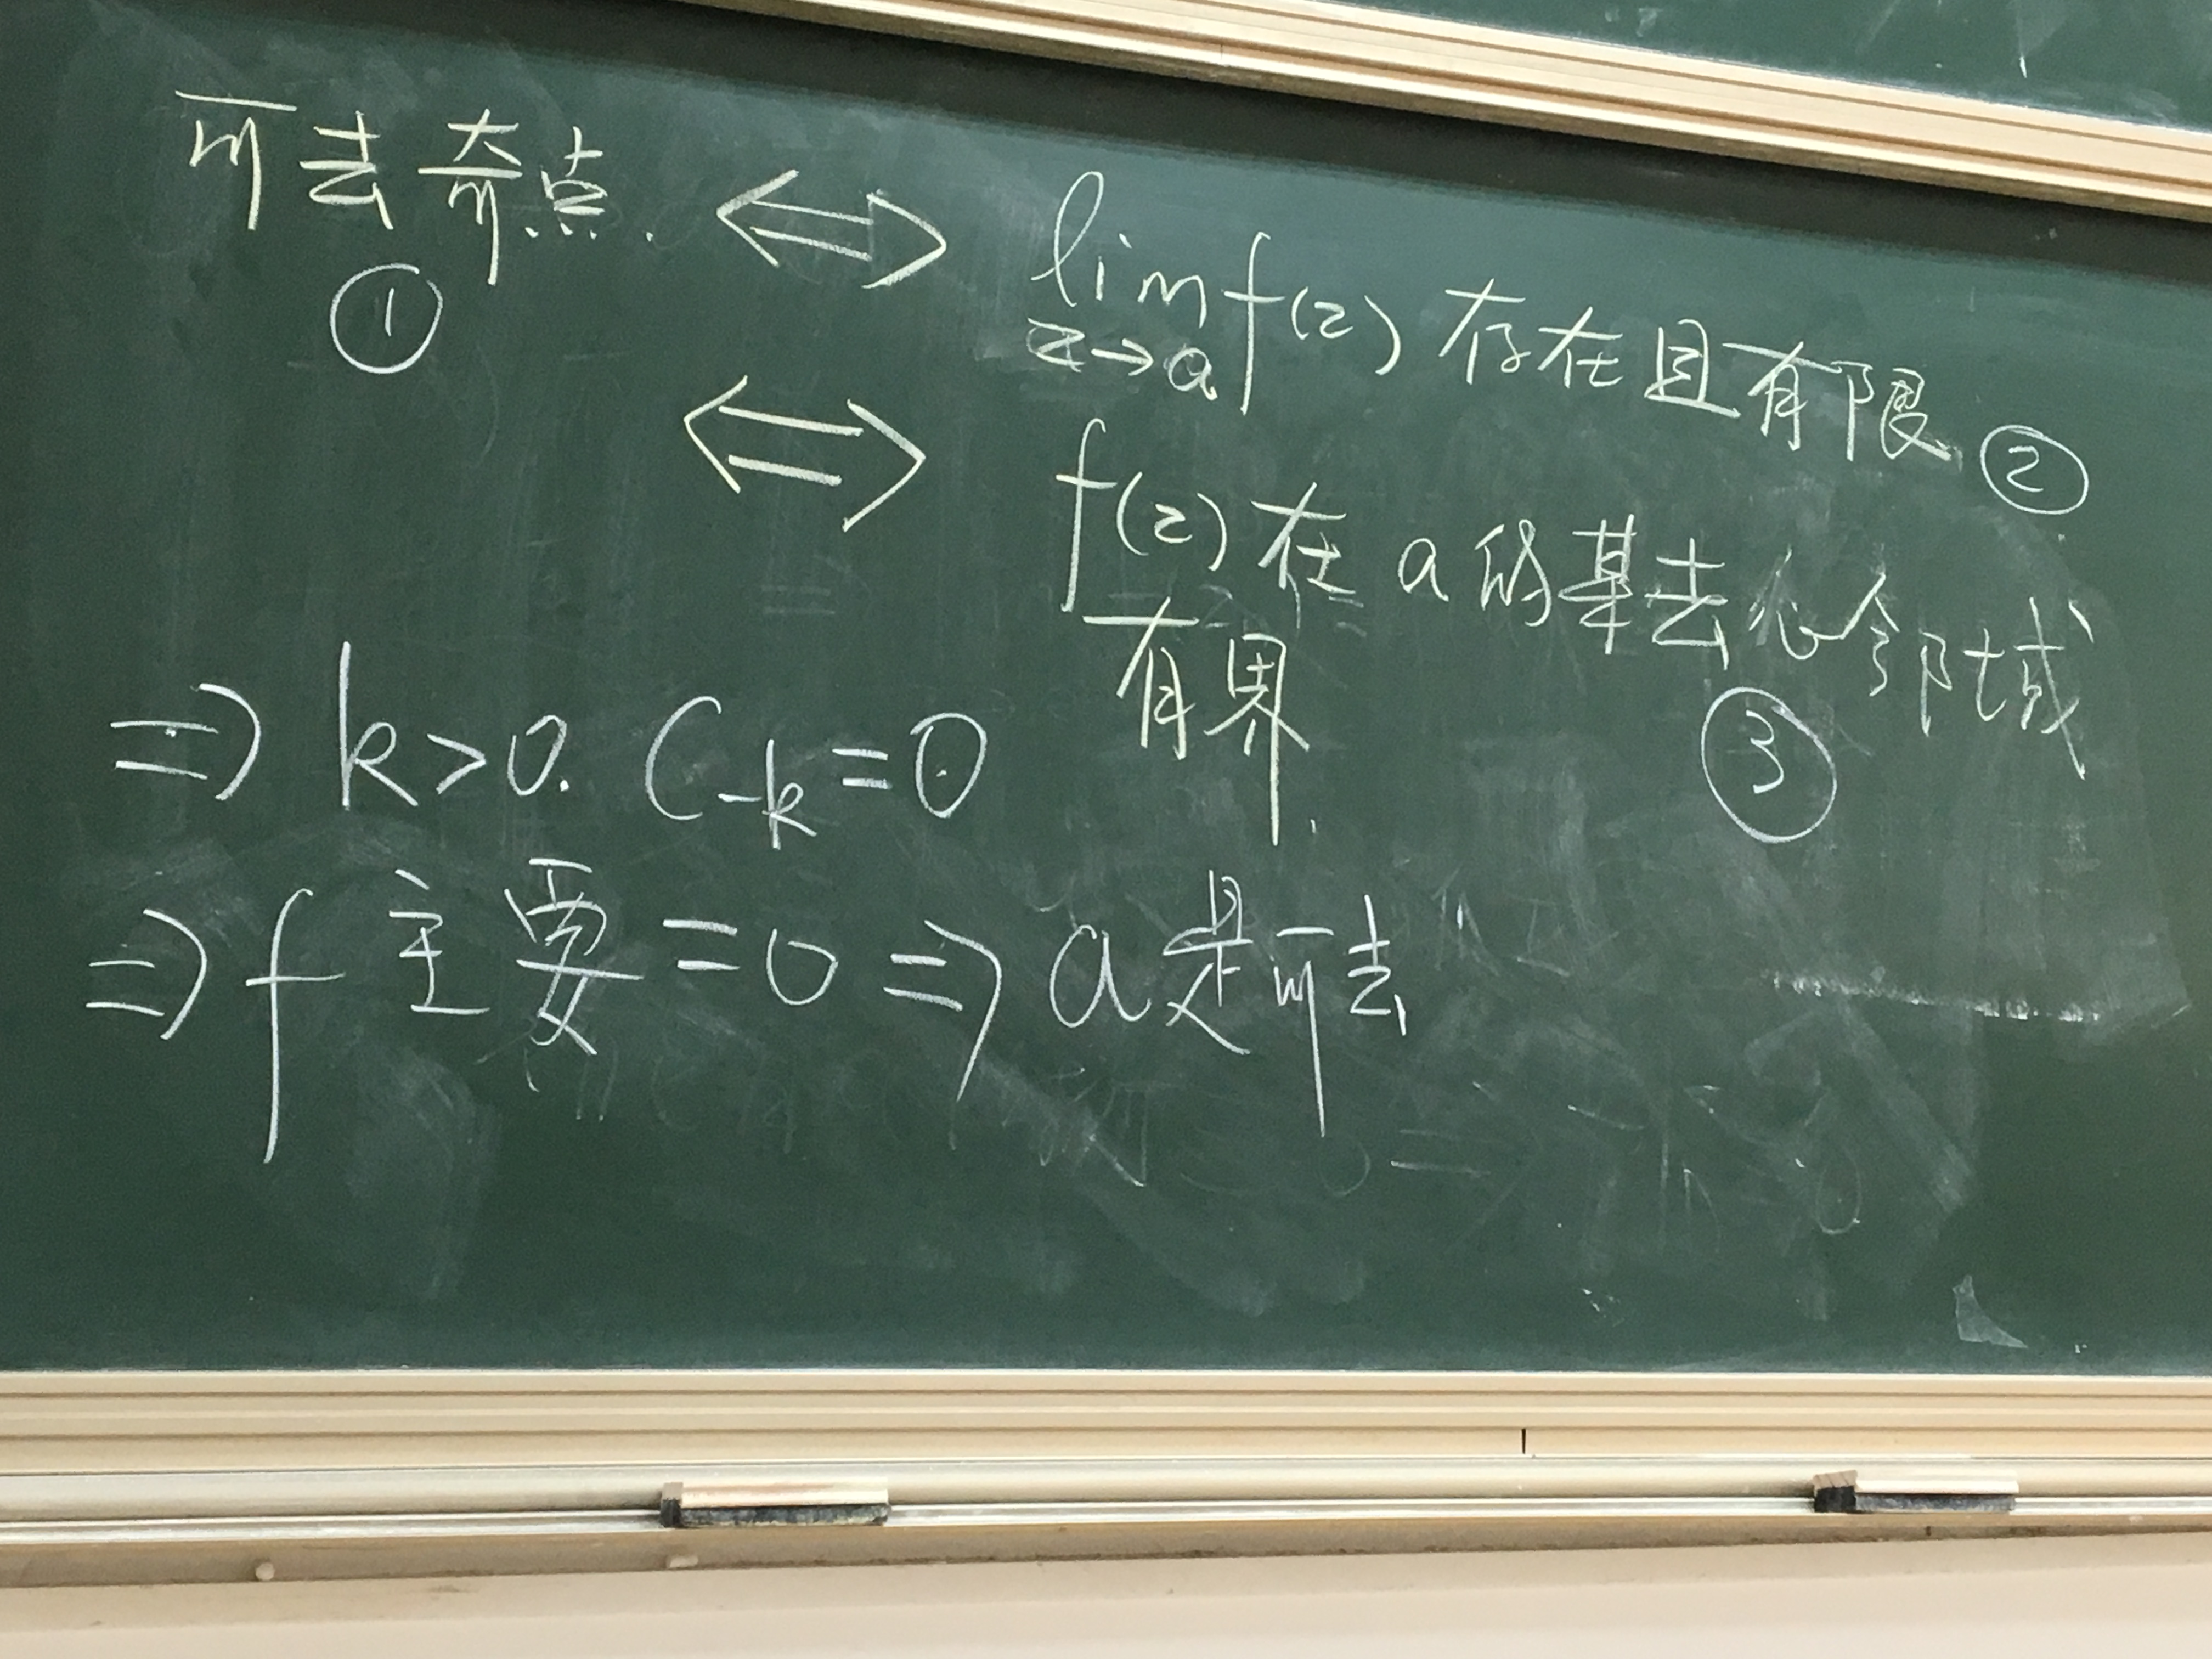 可去奇点. ⟺ lim f(z) 存在且有限 ②
① z→a
⟺ f(z)在 a 的某去心邻域
有界. ③
⇒ k>0. C₋ₖ=0
⇒ f 主要=0 ⇒ a是可去